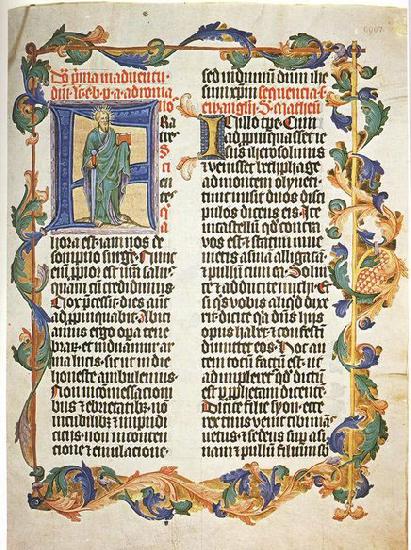 nos
Ra
tres
S
ci
en
tes
hora est iam nos de
sompno surgere Nunc
enim ppior est nra salus
quam cu credidimus
Nox pcessit dies aute
appinquabit Abicia
mus ergo opa tene
brar et induamur ar
ma lucis sic ut in die
honeste ambulemus
Non in comessacioni
bus et ebrietatib no
in cubilibus et inpudi
ciciis non in conten
cione et emulacione
sed induimini dnm ihe
sum xpm sequencia s
ewangelii S Matheu
In illo tpe Cum
appinquasset ie
sus iherosolimis
et venisset bethphage
ad montem olyveti
tunc misit duos disci
pulos dicens eis Ite
in castellu qd contra
vos est et statim inve
nietis asina alligata
et pullu cum ea Solvi
te et adducite michi Et
si qs vobis aliqd dixe
rit dicite qa dns hiis
opus habet et confesti
dimittet eos Hoc au
tem totu factu est ut
adimpleret qd dictu
est p pphetam dicente
Dicite filie syon ecce
rex tuus venit tibi man
suetus et sedens sup asi
nam et pullum filiu